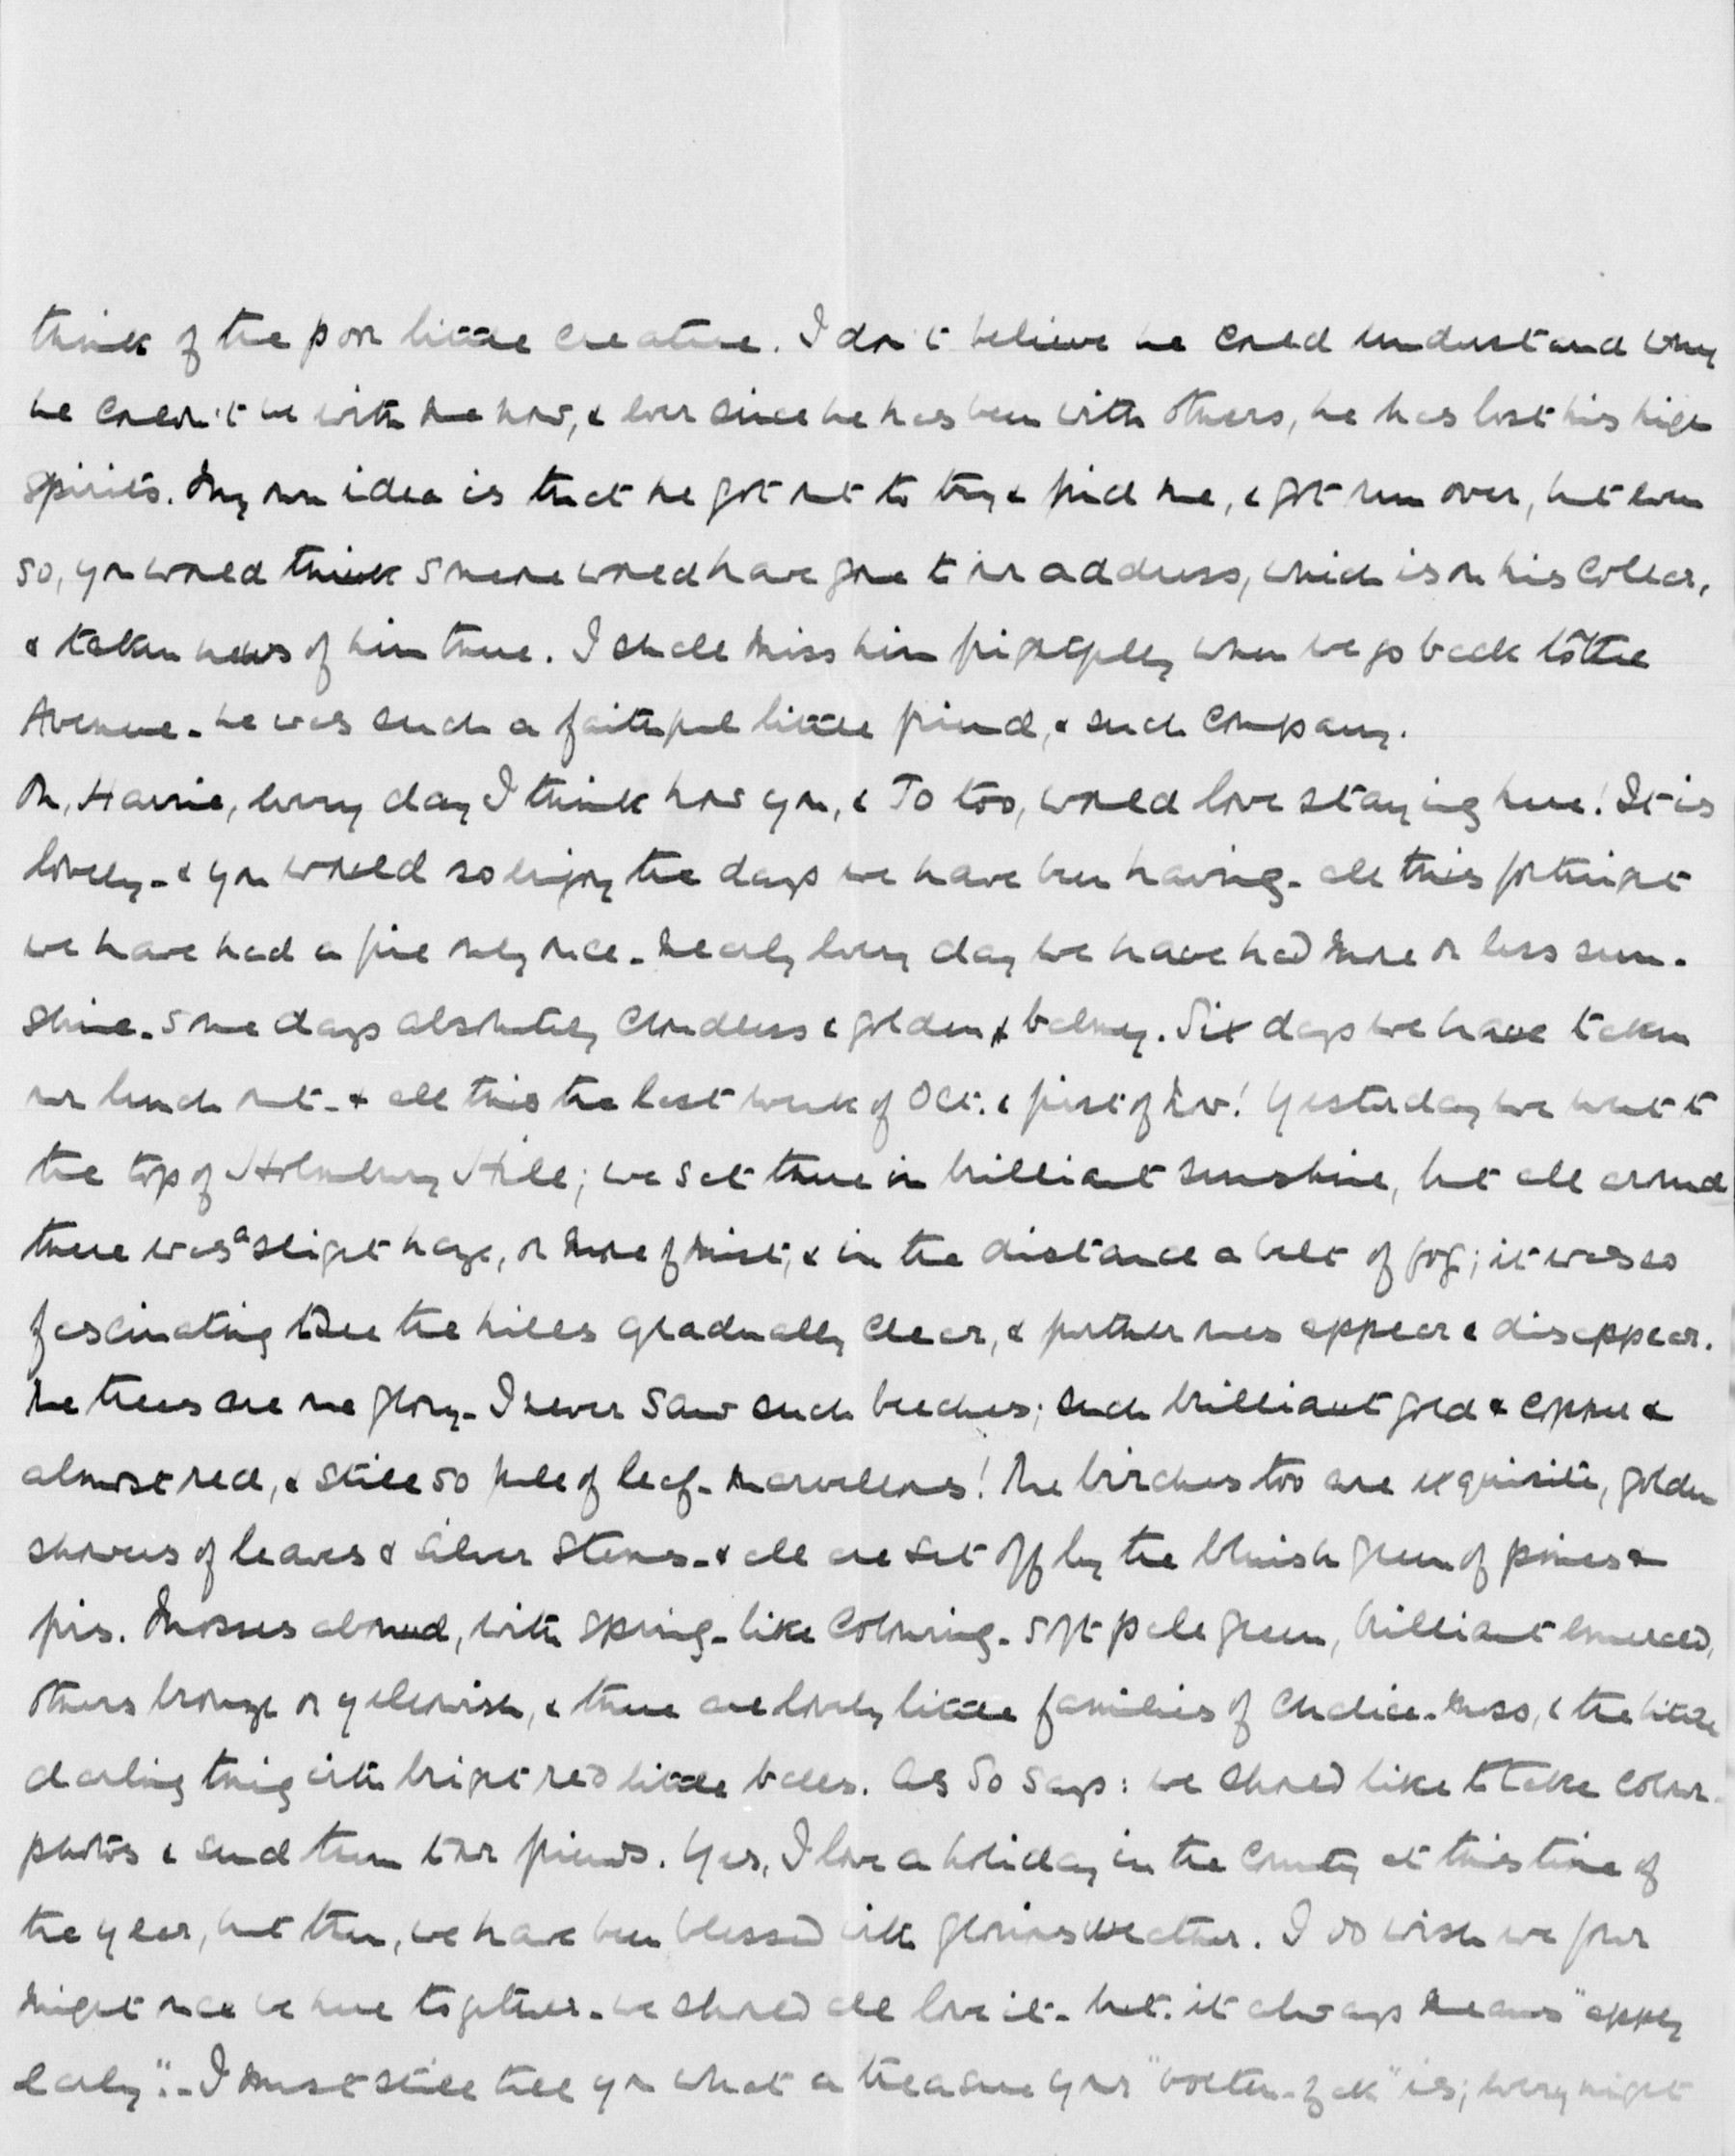 think of the poor little creature. I don't believe he could understand why
he couldn't be with me now, & ever since he has been with others, he has lost his high
spirits. My own idea is that he got out to try & find me, & got run over, but even
so, you would think someone would have gone to our address, which is on his collar,
& taken news of him there. I shall miss him frightfully when we go back to the
Avenue - he was such a faithful little friend, & such company.
Oh, Harrie, every day I think how you, & Jo too, would love staying here! It is
lovely - & you would so enjoy the days we have been having - all this fortnight
we have had a fire only once. Nearly every day we have had more or less sun-
shine - some days absolutely cloudless & golden & balmy. Six days we have taken
our lunch out - & all this the last week of Oct. & first of Nov! Yesterday we went to
the top of Holmbury Hill; we sat there in brilliant sunshine, but all around
there was a slight haze, or more of mist, & in the distance a belt of fog; it was so
fascinating to see the hills gradually clear, & further ones appear & disappear.
The trees are one glory - I never saw such beeches; such brilliant gold & copper &
almost red, & still so full of leaf - marvellous! The birches too are exquisite, golden
showers of leaves & silver stems - & all are set off by the bluish green of pines &
firs. Mosses abound, with spring-like colouring - soft pale green, brilliant emerald,
others bronze or yellowish, & there are lovely little families of chalice-moss, & the little
darling thing with bright red little balls. As So says: we should like to take colour-
photos & send them to our friends. Yes, I love a holiday in the country at this time of
the year, but then, we have been blessed with glorious weather. I do wish we four
might once be here together - we should all love it - but. it always means "apply
early". - I must still tell you what a treasure your "voeten-zak" is; every night